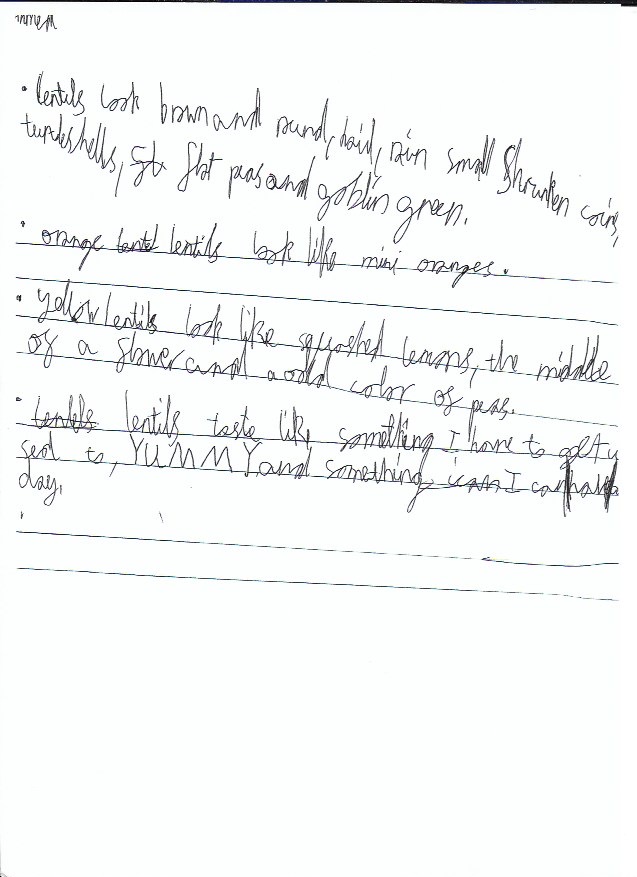 • lentils look brown and round, small Shrunken coins,
turtleshells, flat peas and goblin green.
• orange lentils look like mini oranges.
• yellow lentils look like squashed lemons, the middle
of a flower and a odd color of peas.
• lentils taste like something I have to get u
sed to, YUMMY and something I can
day.